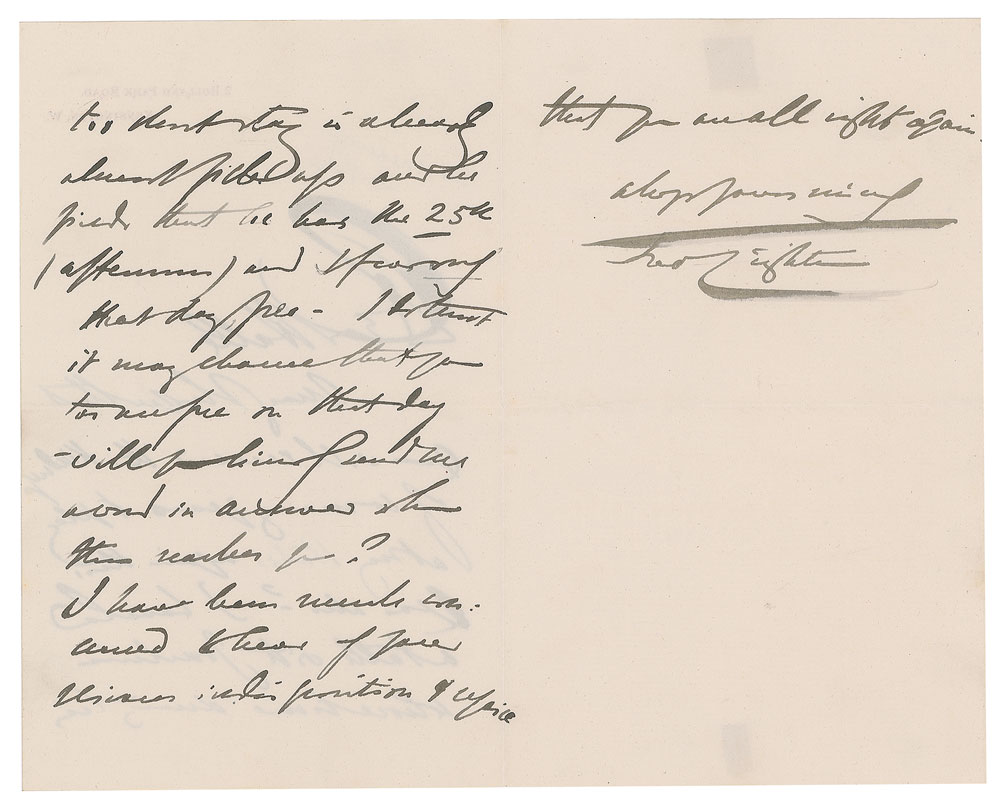 too short stay is already
almost filled up and he
finds that he has the 25th
(afternoon) and
that day, free - I do trust
it may chance that you
too are free on that day
- will you kindly send me
a word in answer when
this reaches you?
I have been much con-
cerned to hear of your
serious indisposition & rejoice
that you are all right again
always yours sincerely
Fred Leighton
2 HOLLAND PARK ROAD
KENSINGTON, W.